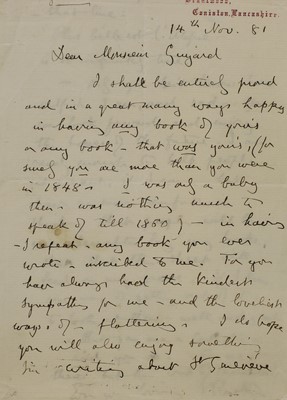 Brantwood,
Coniston, Lancashire.
14th Nov. 81
Dear Monsieur Guyard
I shall be entirely proud
and in a great many ways happy
in having any book of yours
or any book - that was yours, (for
surely you are more than you were
in 1848. I was only a baby
then - was nothing much to
speak of till 1860) - in having
- I repeat - any book you ever
wrote - inscribed to me. For you
have always had the kindest
sympathy for me - and the loveliest
ways - of - flattering. I do hope
you will also enjoy something
I'm writing about St Genevieve